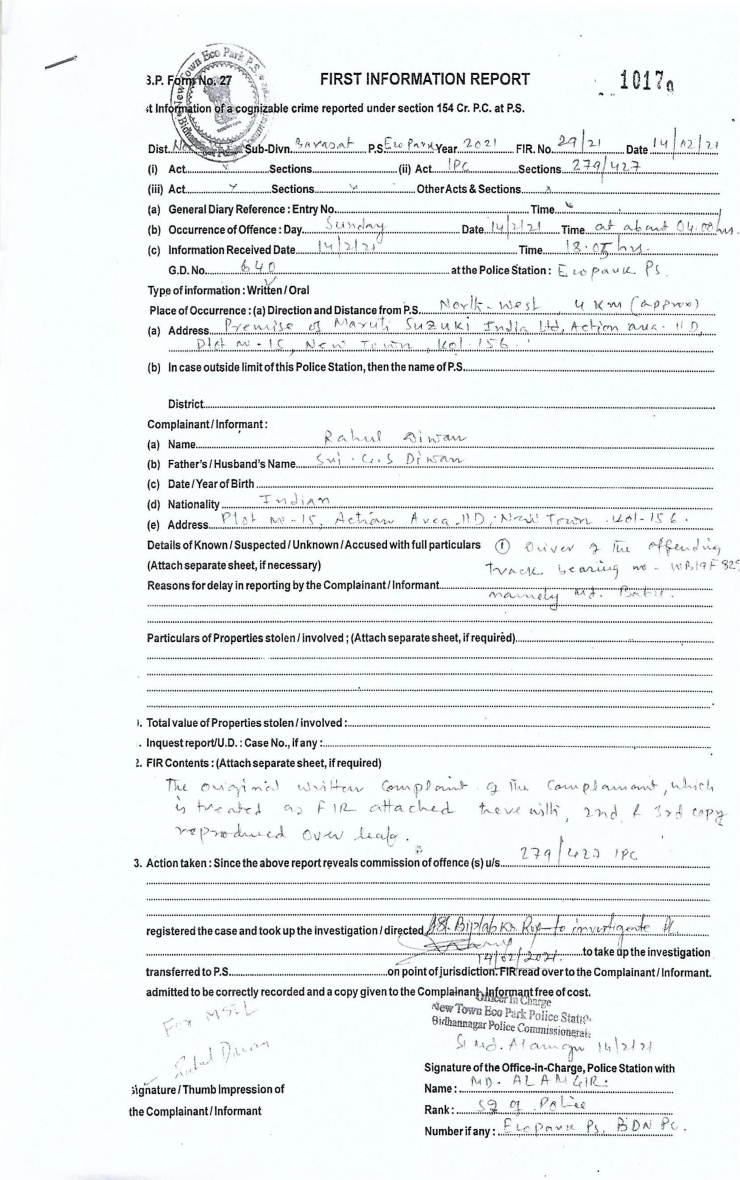 New Town Eco Park P.S.
B.P. Form No. 27 FIRST INFORMATION REPORT 1017
st Information of a cognizable crime reported under section 154 Cr. P.C. at P.S.
Dist. Sub-Divn. Barasat P.S Eco Park Year 2021 FIR. No. 29/21 Date 14/02/21
(i) Act x Sections (ii) Act IPC Sections 279/427
(iii) Act x Sections x Other Acts & Sections x
(a) General Diary Reference : Entry No. Time x
(b) Occurrence of Offence : Day Sunday Date 14/2/21 Time at about 04:00 hrs.
(c) Information Received Date 14/2/21 Time 18:05 hrs.
G.D. No. 640 at the Police Station : Ecopark Ps.
Type of information : Written / Oral
Place of Occurrence : (a) Direction and Distance from P.S. North-West 4 KM (approx)
(a) Address Premise of Maruti Suzuki India Ltd, Action area- IID,
Plot no - 15, New Town, Kol-156.
(b) In case outside limit of this Police Station, then the name of P.S.
District
Complainant / Informant :
(a) Name Rahul Diwan
(b) Father's / Husband's Name Sri. G.S Diwan
(c) Date / Year of Birth
(d) Nationality Indian
(e) Address Plot no-15, Action Area. IID, New Town . Kol-156.
Details of Known / Suspected / Unknown / Accused with full particulars (1) Driver of the offending
(Attach separate sheet, if necessary) truck bearing no - WB19F 829
Reasons for delay in reporting by the Complainant / Informant namely Md. Babir.
Particulars of Properties stolen / involved ; (Attach separate sheet, if required)
. Total value of Properties stolen / involved :
. Inquest report/U.D. : Case No., if any :
2. FIR Contents : (Attach separate sheet, if required)
The original written complaint of the complainant, which
is treated as FIR attached herewith, 2nd & 3rd copy
reproduced over leaf.
3. Action taken : Since the above report reveals commission of offence (s) u/s. 279/427 IPC
registered the case and took up the investigation / directed ASI Biplab Kr. Roy to investigate it.
14/02/2021 to take up the investigation
transferred to P.S. on point of jurisdiction. FIR read over to the Complainant / Informant.
admitted to be correctly recorded and a copy given to the Complainant, Informant free of cost.
Officer In Charge
New Town Eco Park Police Station
Bidhannagar Police Commissionerate
For MSIL
SI Md. Alamgir 14/2/21
Rahul Diwan
Signature of the Office-in-Charge, Police Station with
Signature / Thumb Impression of
the Complainant / Informant
Name : MD. ALAMGIR.
Rank : SI of Police
Number if any : Ecopark Ps. BDN PC.